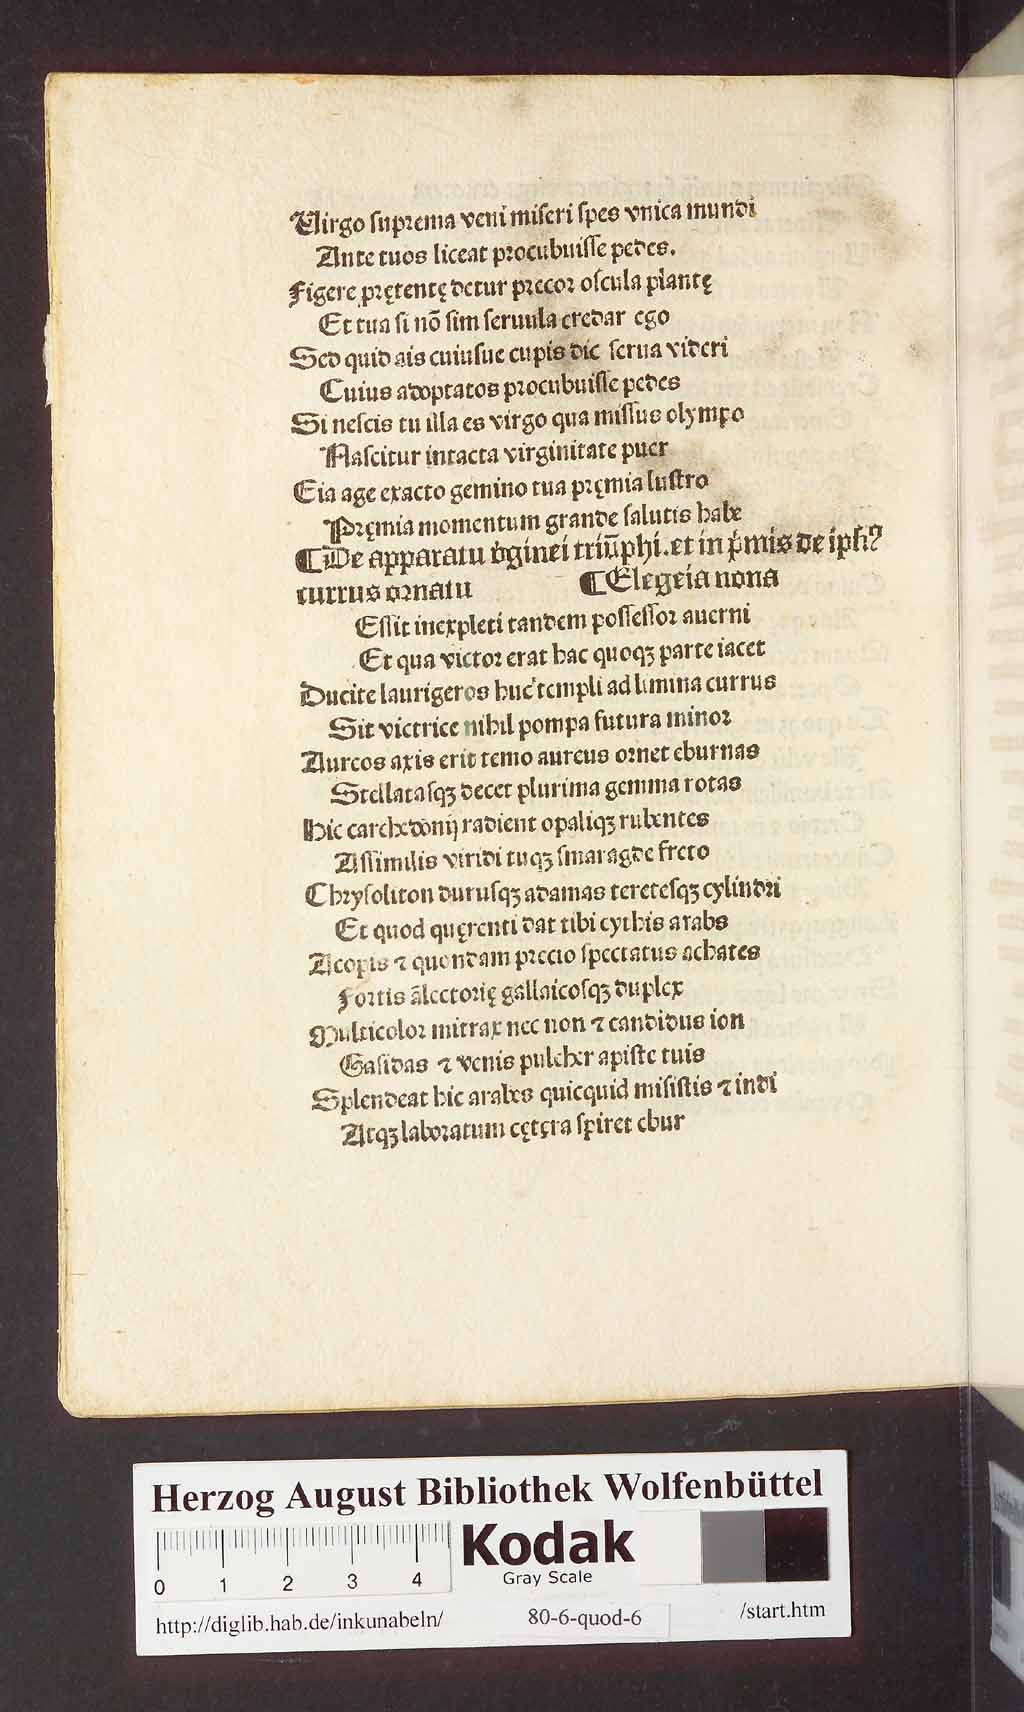 Virgo ſuprema veni miſeri ſpes vnica mundi
Ante tuos liceat procubuiſſe pedes.
Figere prętentę detur precor oſcula plantę
Et tua ſi nõ ſim ſeruula credar ego
Sed quid ais cuiuſue cupis dic ſerua videri
Cuius adoptatos procubuiſſe pedes
Si neſcis tu illa es virgo qua miſſus olympo
Naſcitur intacta virginitate puer
Eia age exacto gemino tua pręmia luſtro
Pręmia momentum grande ſalutis habe
¶De apparatu v̓ginei triũphi. et in p̓mis de ipſiꝰ
currus ornatu ¶Elegeia nona
Eſſit inexpleti tandem poſſeſſor auerni
Et qua victor erat hac quoqꝫ parte iacet
Ducite laurigeros huc templi ad limina currus
Sit victrice nihil pompa futura minor
Aureos axis erit temo aureus ornet eburnas
Stellataſqꝫ decet plurima gemma rotas
Hic carchedonij radient opaliqꝫ rubentes
Aſſimilis viridi tuqꝫ ſmaragde freto
Chryſoliton duruſqꝫ adamas tereteſqꝫ cylindri
Et quod quęrenti dat tibi cythis arabs
Acopis ⁊ quondam precio ſpectatus achates
Fortis ãlectorię gallaicoſqꝫ duplex
Multicolor mitrax nec non ⁊ candidus ion
Gaſidas ⁊ venis pulcher apiſte tuis
Splendeat hic arabes quicquid miſiſtis ⁊ indi
Atqꝫ laboratum cętęra ſpiret ebur
Herzog August Bibliothek Wolfenbüttel
Kodak
Gray Scale
0 1 2 3 4
http://diglib.hab.de/inkunabeln/ 80-6-quod-6 /start.htm